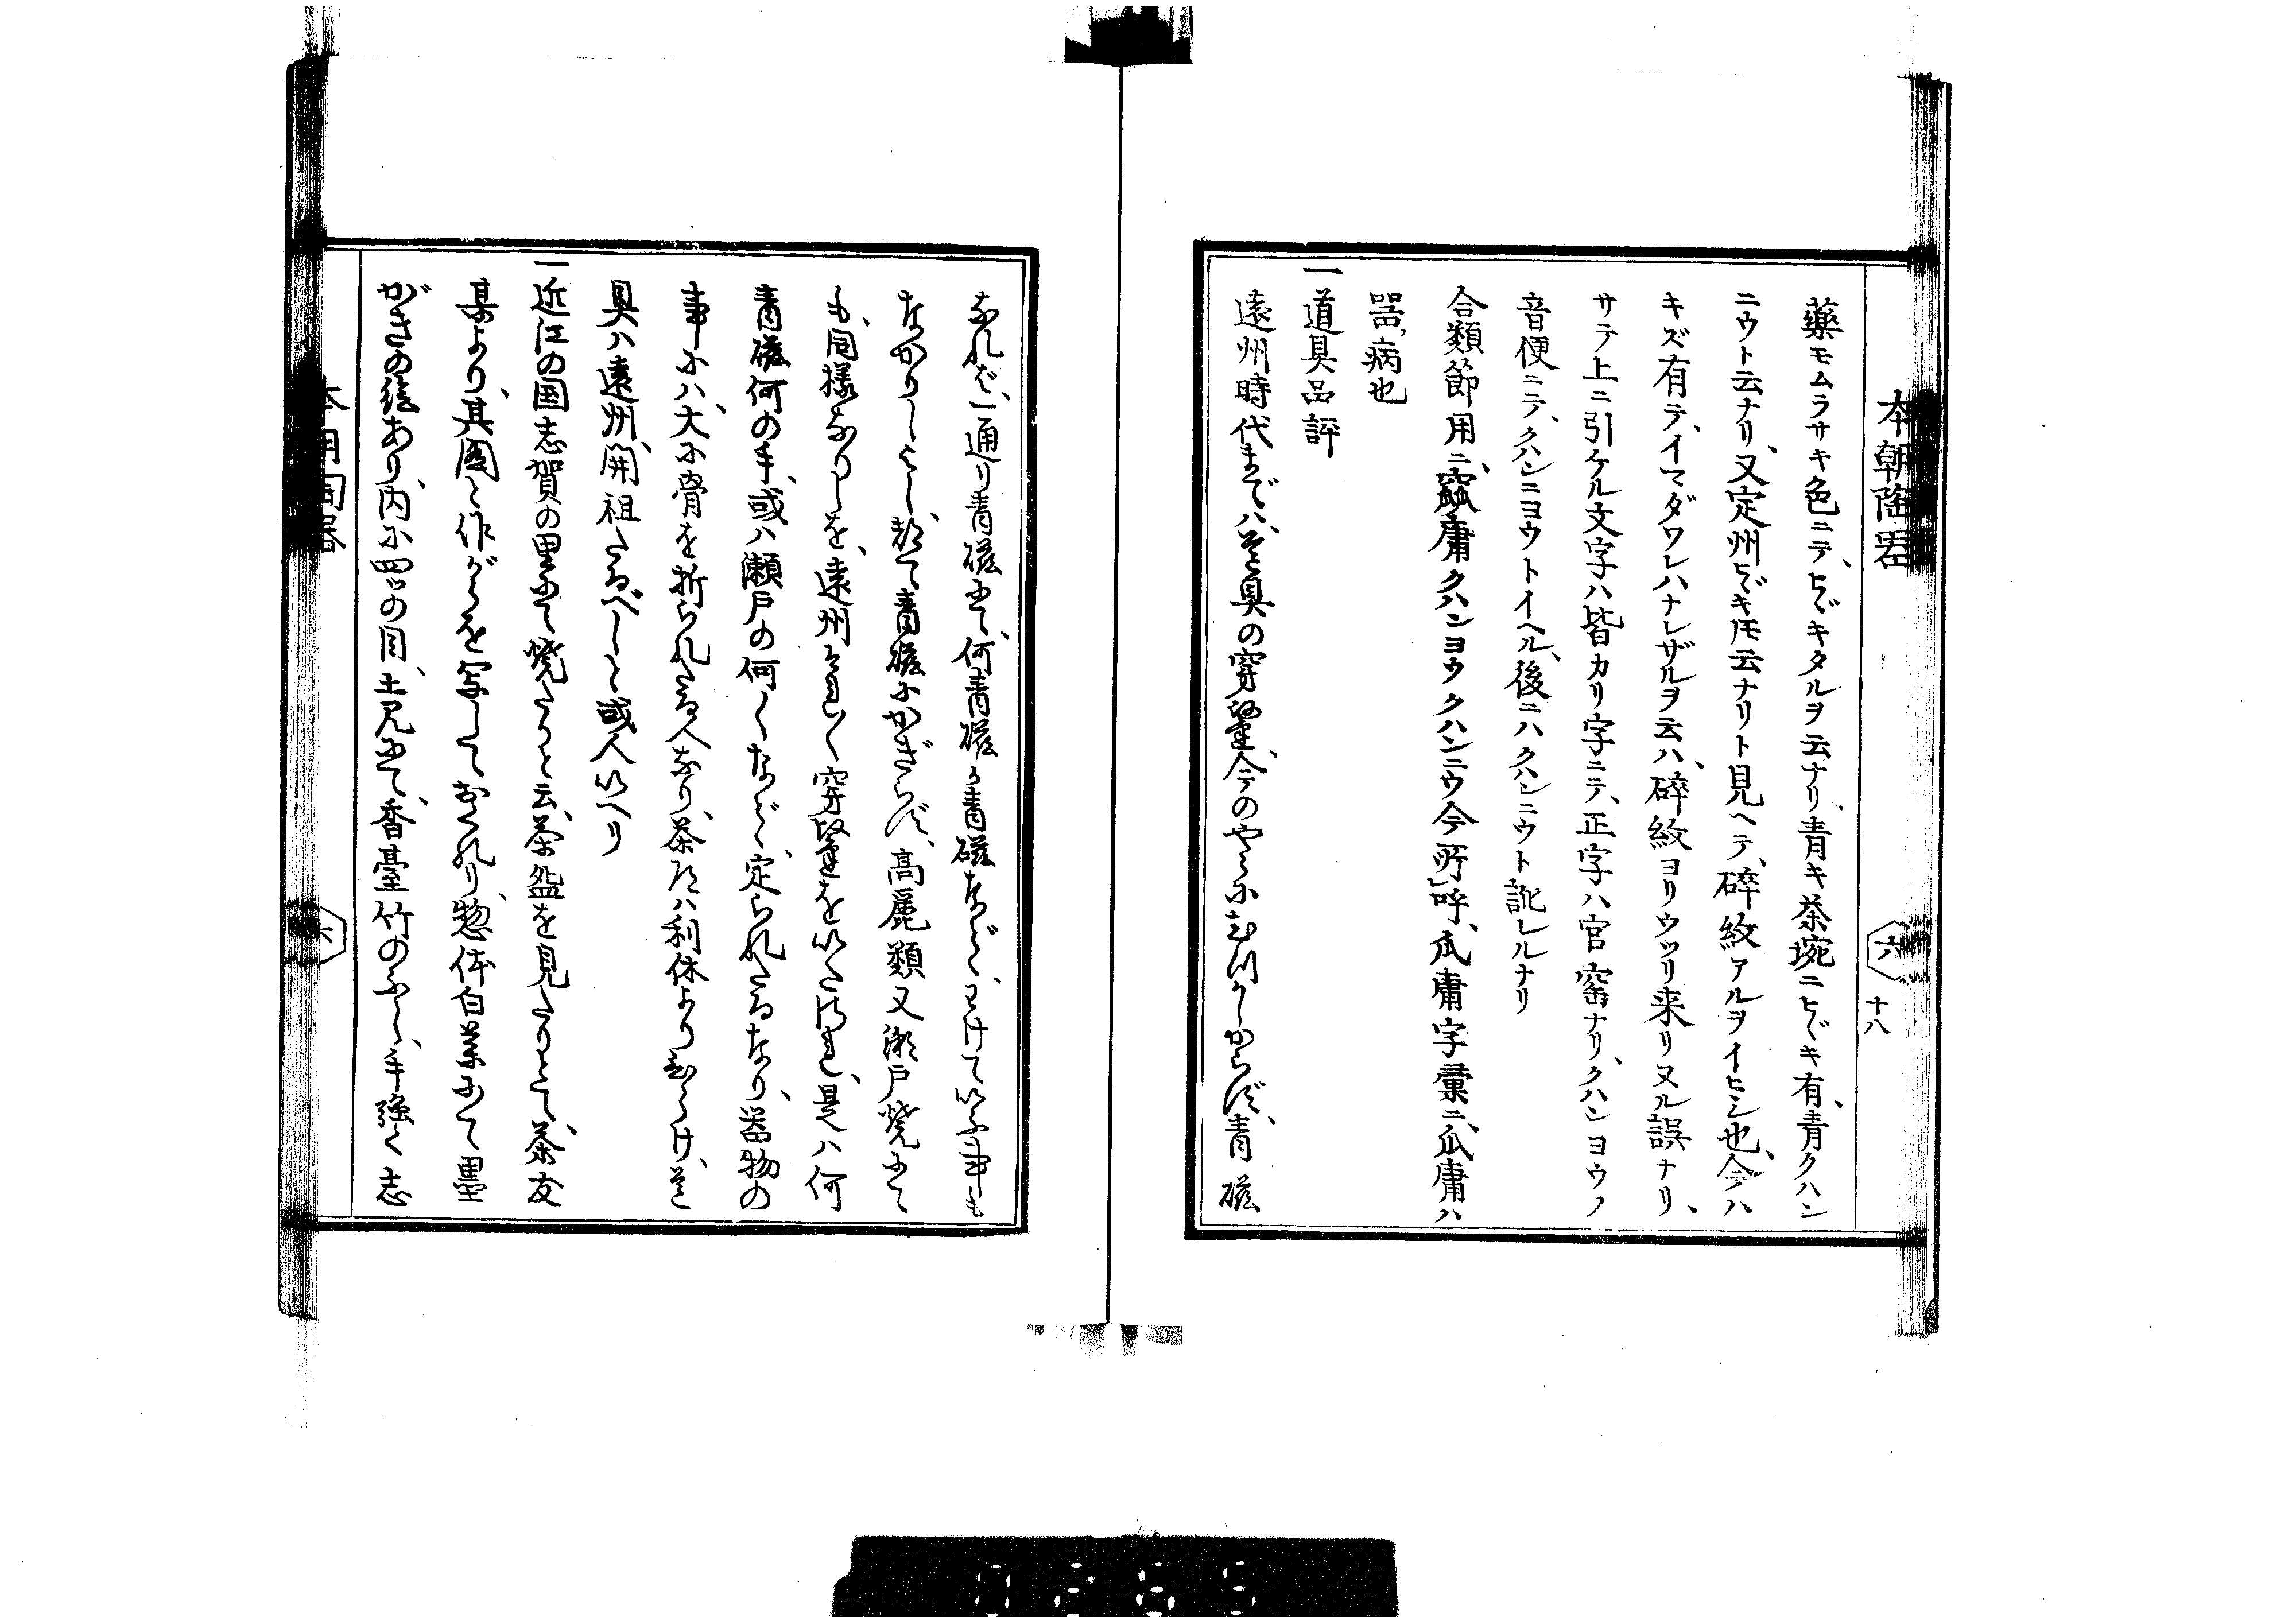 本朝陶器
六
十八
藥モムラサキ色ニテ、ヒヾキタルヲ云ナリ、青キ茶埦ニヒヾキ有、青クハン
ニウト云ナリ、又定州ヒヾキ𪜈云ナリト見ヘテ、碎紋アルヲイヒシ也、今ハ
キズ有テ、イマダワレハナレザルヲ云ハ、碎紋ヨリウツリ来リヌル誤ナリ、
サテ上ニ引ケル文字ハ皆カリ字ニテ、正字ハ官窑ナリ、クハンヨウノ
音便ニテ、クハンニヨウトイヘル、後ニハクハンニウト訛レルナリ
合類節用ニ、窳庸クハンヨウ クハンニウ今所呼、㼌庸字彙ニ、㼌庸ハ
器病也
一道具品評
遠州時代まで ハ、道具の穿鑿、今のやうにむつかしからず、青磁
なれば、一通り青磁にて、何青磁か青磁など、わけていふ事も
なかりしよし、都て青磁にかぎらず、高麗類又瀬戸焼にて
も、同様なりしを、遠州それ〱穿鑿をいたされ、是ハ何
青磁何の手、或ハ瀬戸の何〱など、定られたるなり、器物の
事にハ、大に骨を折られたる人なり、茶道ハ利休よりひらけ、道
具ハ遠州、開祖たるべしと或人いへり
一近江の国志賀の里にて焼たりと云、茶盌を見たりとて、茶友
某より、其図と作がらを写しておくれり、惣体白薬にて墨
がきの絵あり、内に四ツの目、土見にて、香臺竹のふし、手強く志
本朝陶器
六